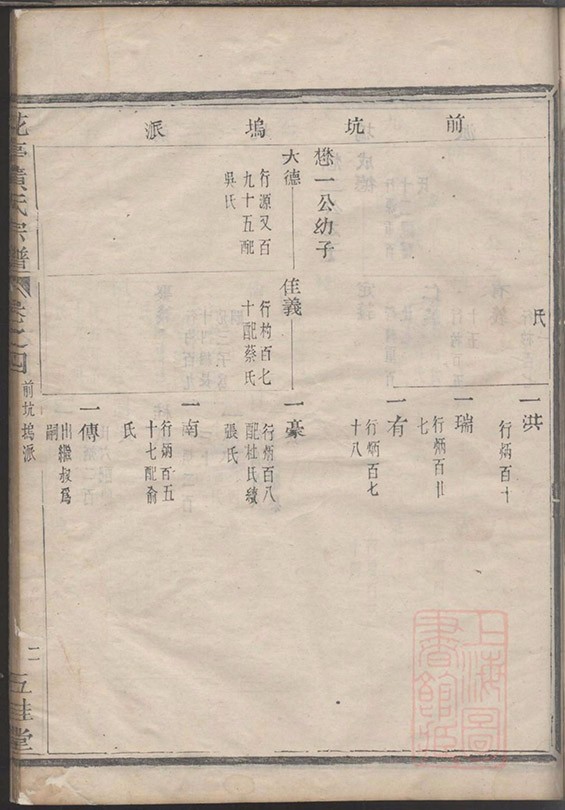 前坑塢派
氏
一洪
行炳百十
一瑞
行炳百廿
七
一有
行炳百七
十八
懋一公幼子
大德
行源又百
九十五配
吳氏
佳義
行杓百七
十配蔡氏
一豪
行炳百八
配杜氏續
張氏
一南
行炳百五
十七配俞
氏
一傳
出繼叔爲
嗣
花亭黃氏宗譜
卷之四
前坑塢派
二
五桂堂
上海圖
書館藏